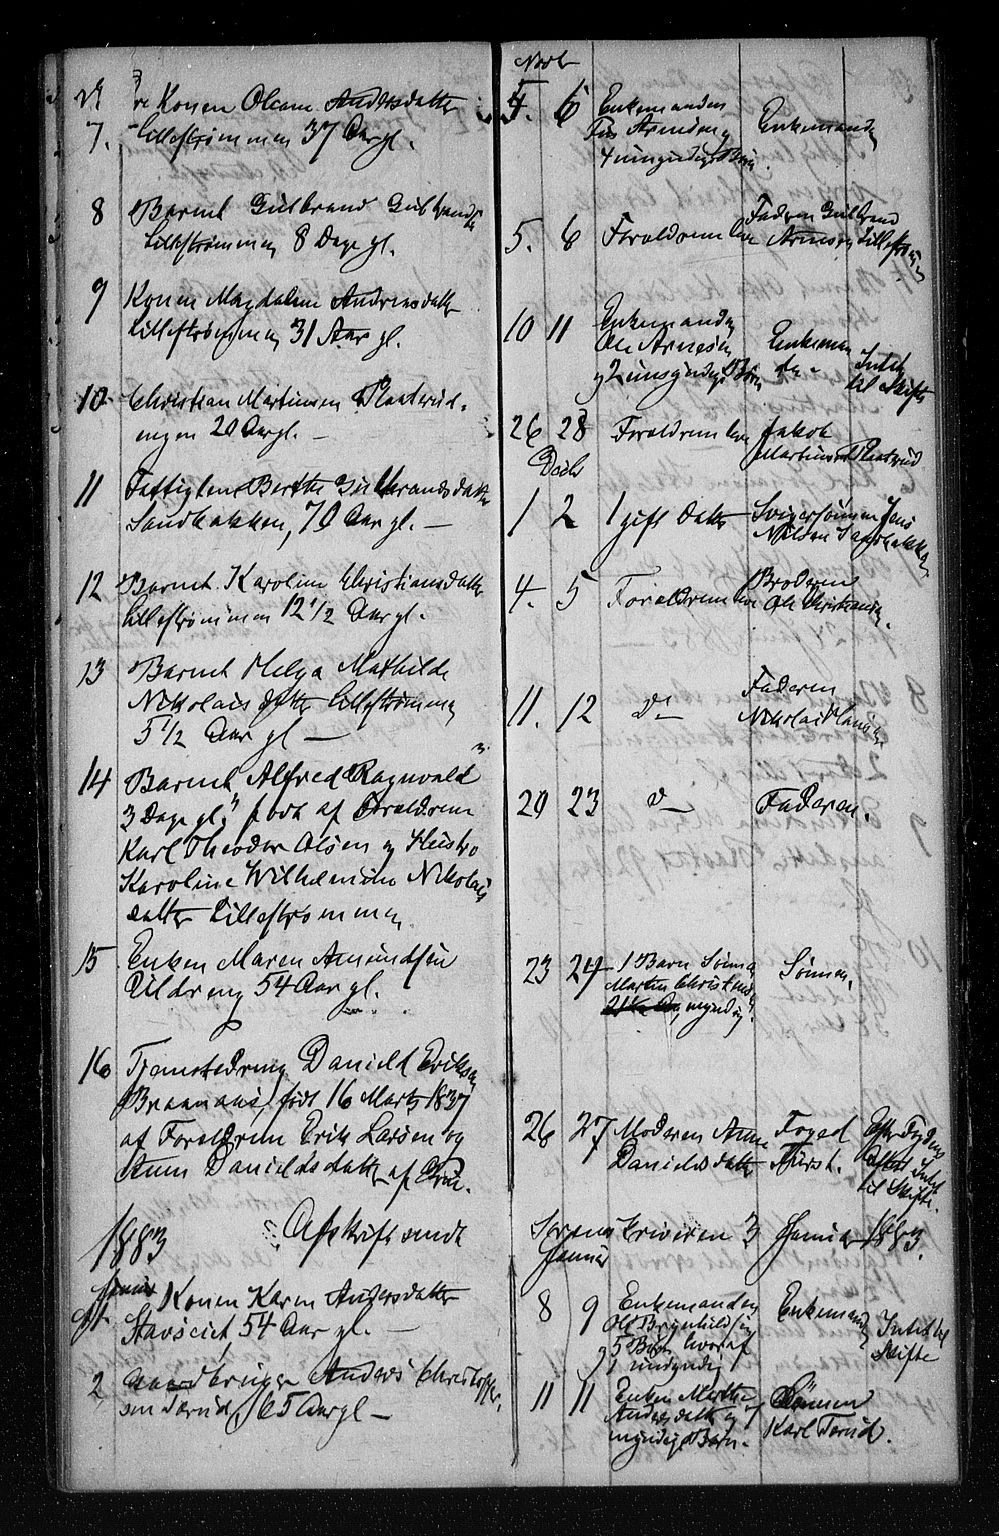 Novbr
7. Konen Oleane Andersdatter
Lillestrømmen 37 Aar gl.
5. 6 Enkemanden
4 umyndige Børn.
Enkemanden
8 Barnet Gulbrand Gulbrands
Lillestrømmen 8 Dage gl.
5. 6 Foreldrene leve
Faderen Gulbrand
Arnesen Lillestrøm
9 Konen Magdalene Andreasdatter
Lillestrømmen 31 Aar gl.
10 11 Enkemanden
Ole Arnesen
og 2 umyndige Børn
Enkeman
den
Intet
til Skifte
10 Christian Martinsen Plaatrud
20 Aar gl. —
26 28 Foreldrene leve
Jakob
Martinsen Plaatrud
Decbr
11 Fattiglem Berthe Gulbrandsdatter
Sandbakken, 70 Aar gl. —
1 2 1 gift Datter
Svigersønnen Jens
Nilsen Sandbakken
12 Barnet Karoline Christiansdatter
Lillestrømmen 12 1/2 Aar gl.
4. 5 Foreldrene leve
Broderen
Ole Christiansen.
13 Barnet Helga Mathilde
Nikolaisdatter Lillestrømmen
5 1/2 Aar gl —
11. 12 do
Faderen
Nikolai Hansen
14 Barnet Alfred Ragnvald
3 Dage gl. født af Foreldrene
Karl Theodor Olsen og Hustro
Karoline Wilhelmine Nikolais
datter Lillestrømmen
20 23 do
Faderen.
15 Enken Maren Amundsen
54 Aar gl.
23 24 1 Barn Sønnen
Martin Christensen
myndig
Sønnen.
16 Daniel Eriksen
Braanaas, født 16 Marts 1837
af Foreldrene Erik Larsen og
Anne Danielsdatter af
26 27 Moderen Anne
Danielsdatter
Foged
Fürst.
Intet
til Skifte.
1883
Afskrift sendt
Sorenskriveren 3 Januar 1883.
Januar
Januar
1. Konen Karen Andersdatter
54 Aar gl. —
8 9 Enkemanden
Ole Brynhildsen
og 5 Børn hvoraf
1 umyndig
Enkemanden
Intet til
Skifte
2 Gaardbruger Anders Christoffer
sen Torud, 65 Aar gl —
11 11 Enken Marthe
Andersdatter og 7
myndige Børn.
Sønnen
Karl Torud.